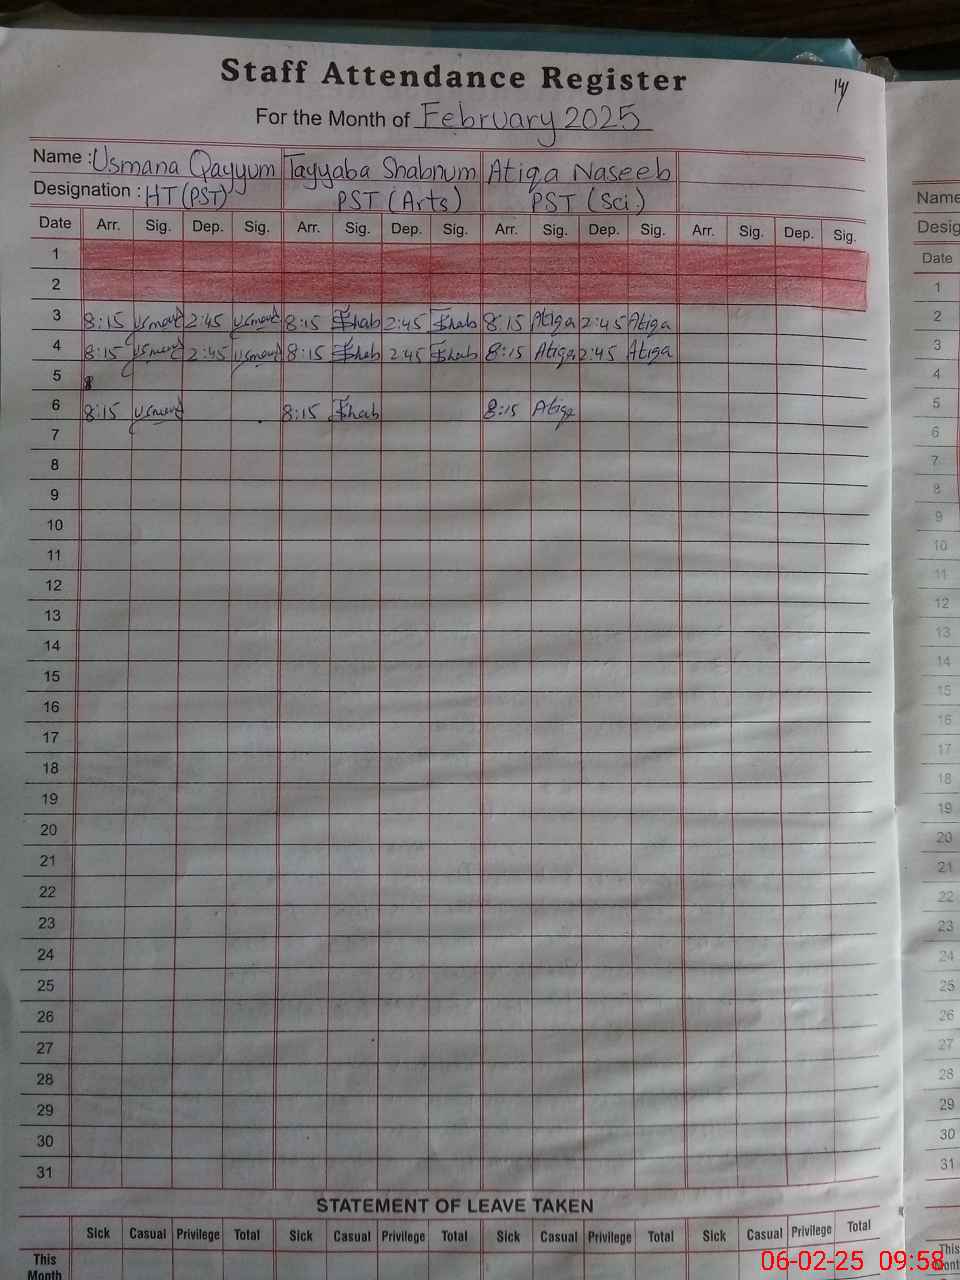 Staff Attendance Register
14
For the Month of February 2025
Name : Usmana Qayyum Tayyaba Shabnum Atiqa Naseeb
Designation : HT (PST) PST (Arts) PST (Sci.)
Date Arr. Sig. Dep. Sig. Arr. Sig. Dep. Sig. Arr. Sig. Dep. Sig. Arr. Sig. Dep. Sig.
1
2
3 8:15 2:45 8:15 2:45 8:15 Atiqa 2:45 Atiqa
4 8:15 2:45 8:15 2:45 8:15 Atiqa 2:45 Atiqa
5 8
6 8:15 8:15 8:15 Atiqa
7
8
9
10
11
12
13
14
15
16
17
18
19
20
21
22
23
24
25
26
27
28
29
30
31
STATEMENT OF LEAVE TAKEN
Sick Casual Privilege Total Sick Casual Privilege Total Sick Casual Privilege Total Sick Casual Privilege Total
This
Month
Name
Desig
Date
1
2
3
4
5
6
7
8
9
10
11
12
13
14
15
16
17
18
19
20
21
22
23
24
25
26
27
28
29
30
31
This
Mont
06-02-25 09:58